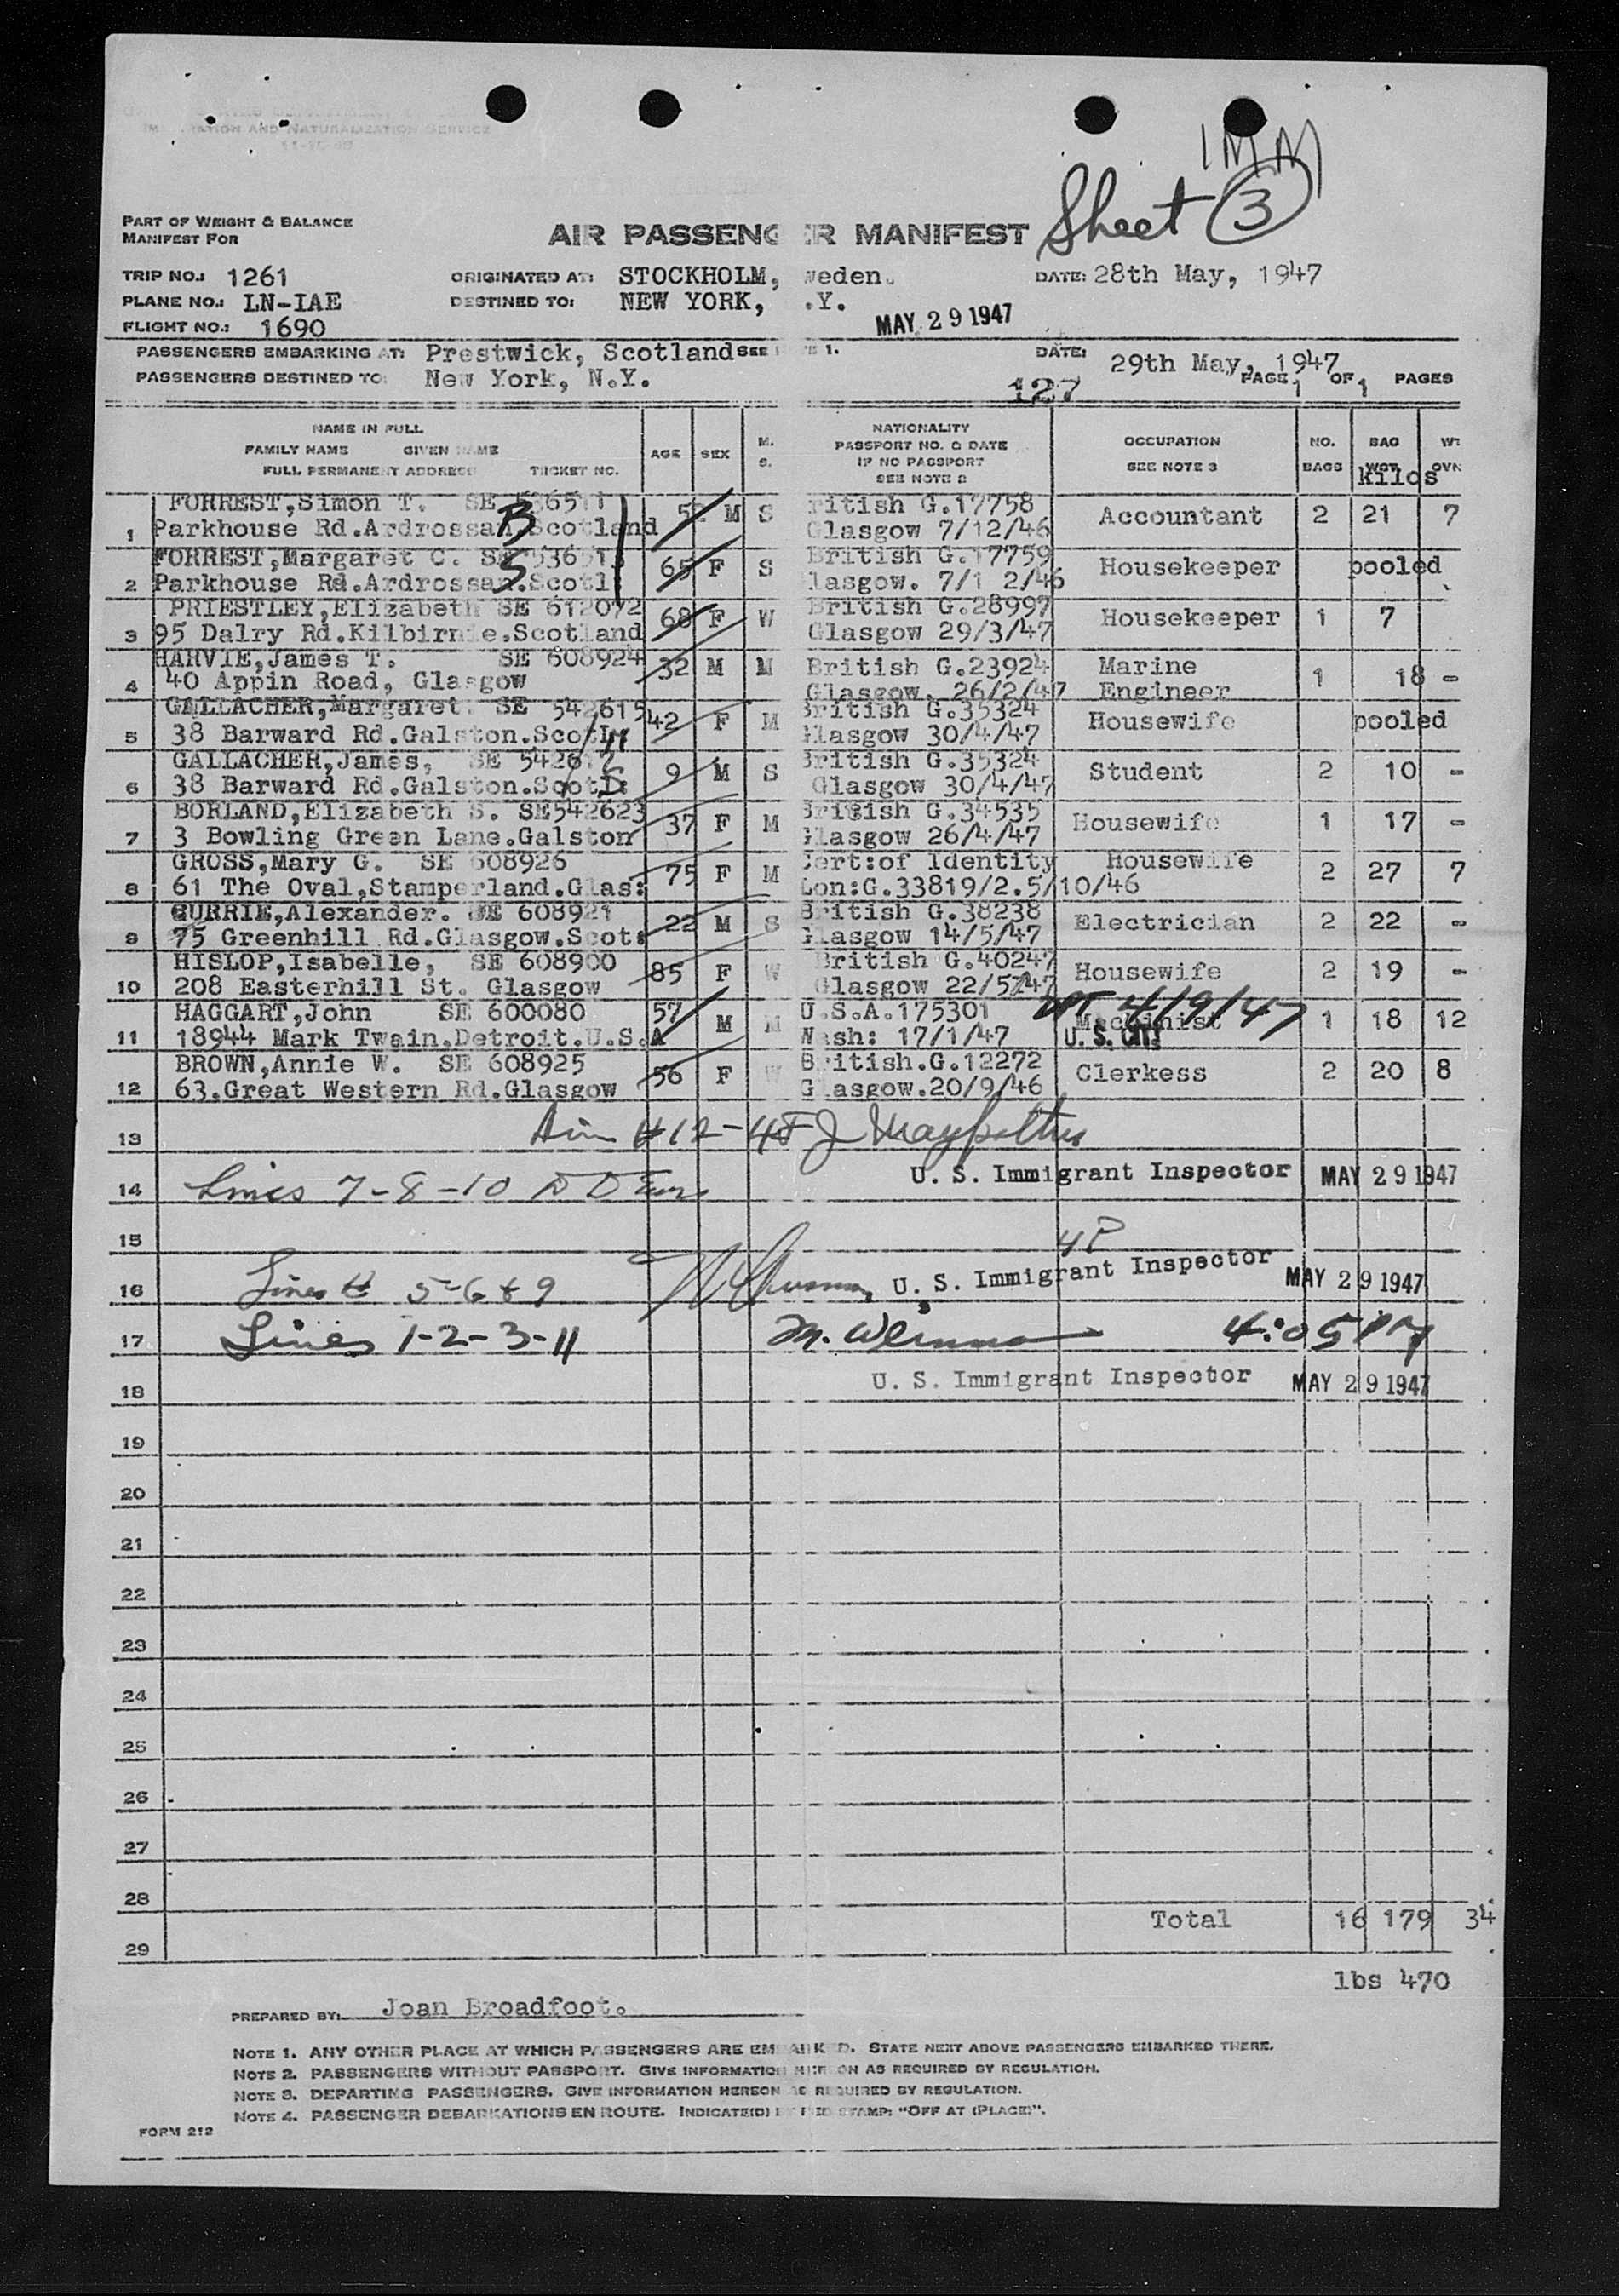 IMM
Sheet 3
PART OF WEIGHT & BALANCE
MANIFEST FOR
AIR PASSENGER MANIFEST
TRIP NO.: 1261 ORIGINATED AT: STOCKHOLM, weden. DATE: 28th May, 1947
PLANE NO.: LN-IAE DESTINED TO: NEW YORK, .Y.
FLIGHT NO.: 1690 MAY 29 1947
PASSENGERS EMBARKING AT: Prestwick, Scotland SEE 1. DATE: 29th May, 1947
PASSENGERS DESTINED TO: New York, N.Y. 127 PAGE 1 OF 1 PAGES
NAME IN FULL
FAMILY NAME GIVEN NAME
FULL PERMANENT ADDRESS TICKET NO.
AGE SEX M. S.
NATIONALITY
PASSPORT NO. & DATE
IF NO PASSPORT
SEE NOTE 2
OCCUPATION
SEE NOTE 3
NO. BAGS
BAG WGT kilos
WT OVN
FORREST,Simon T. SE 536511 M S ritish G.17758
1 Parkhouse Rd.Ardrossan Scotland Glasgow 7/12/46 Accountant 2 21 7
FORREST,Margaret C. SE 536513 65 F S British G.17759
2 Parkhouse Rd.Ardrossan.Scotl: lasgow. 7/1 2/46 Housekeeper pooled
PRIESTLEY,Elizabeth SE 612072 68 F W British G.28997
3 95 Dalry Rd.Kilbirnie.Scotland Glasgow 29/3/47 Housekeeper 1 7
HARVIE,James T. SE 608924 32 M M British G.23924 Marine
4 40 Appin Road, Glasgow Glasgow. 26/2/47 Engineer 1 18 -
GALLACHER,Margaret. SE 542615 42 F M British G.35324
5 38 Barward Rd.Galston.Scotl Glasgow 30/4/47 Housewife pooled
GALLACHER,James, SE 542617 9 M S British G.35324
6 38 Barward Rd.Galston.Scot Glasgow 30/4/47 Student 2 10 -
BORLAND,Elizabeth S. SE542623 37 F M British G.34535
7 3 Bowling Green Lane.Galston Glasgow 26/4/47 Housewife 1 17 -
GROSS,Mary G. SE 608926 75 F M Cert:of Identity Housewife
8 61 The Oval,Stamperland.Glas: Lon:G.33819/2.5/10/46 2 27 7
CURRIE,Alexander. SE 608921 22 M S British G.38238
9 75 Greenhill Rd.Glasgow.Scot: Glasgow 14/5/47 Electrician 2 22 -
HISLOP,Isabelle, SE 608900 85 F W British G.40247
10 208 Easterhill St. Glasgow Glasgow 22/5/47 Housewife 2 19 -
HAGGART,John SE 600080 57 M M U.S.A.175301 4/9/47
11 18944 Mark Twain.Detroit.U.S.A Wash: 17/1/47 Machinist U.S. 1 18 12
BROWN,Annie W. SE 608925 56 F W British.G.12272
12 63.Great Western Rd.Glasgow Glasgow.20/9/46 Clerkess 2 20 8
13 #12-4
U. S. Immigrant Inspector MAY 29 1947
14 Lines 7-8-10
15 4P
16 Lines # 5-6 & 9 U. S. Immigrant Inspector MAY 29 1947
17 Lines 1-2-3-11 4:05PM
18 U. S. Immigrant Inspector MAY 29 1947
19
20
21
22
23
24
25
26
27
28
29 Total 16 179 34
lbs 470
PREPARED BY: Joan Broadfoot.
NOTE 1. ANY OTHER PLACE AT WHICH PASSENGERS ARE EMBARKED. STATE NEXT ABOVE PASSENGERS EMBARKED THERE.
NOTE 2. PASSENGERS WITHOUT PASSPORT. GIVE INFORMATION HEREON AS REQUIRED BY REGULATION.
NOTE 3. DEPARTING PASSENGERS. GIVE INFORMATION HEREON AS REQUIRED BY REGULATION.
NOTE 4. PASSENGER DEBARKATIONS EN ROUTE. INDICATE(D) STAMP: "OFF AT (PLACE)".
FORM 212